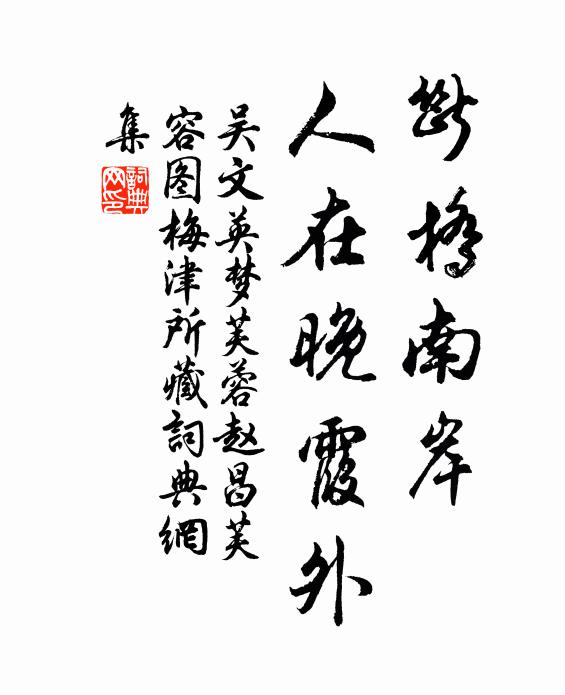 斷橋南岸
人在晚霞外
吴文英梦芙蓉赵昌芙
容图梅津所藏詞典網
集
詞典网印